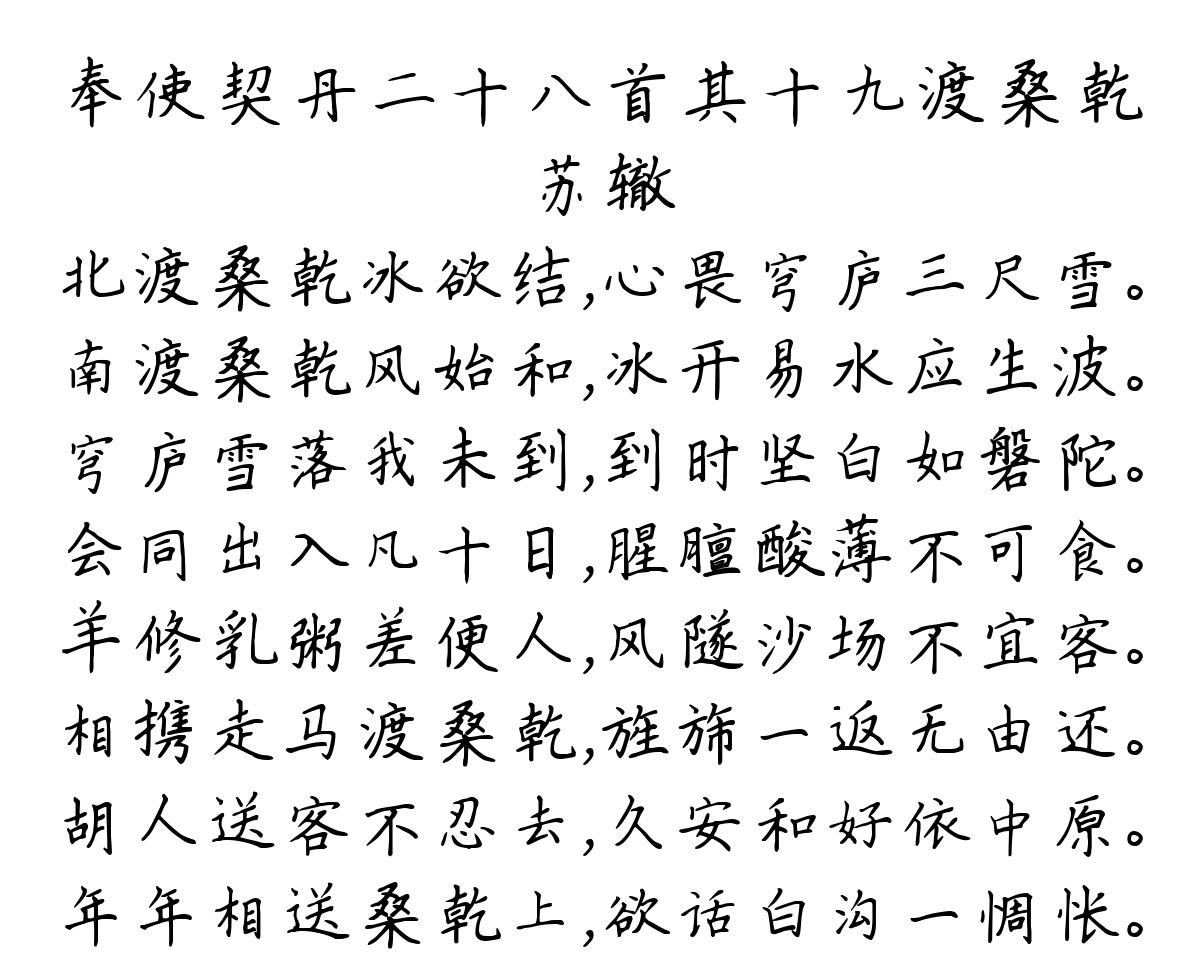 奉使契丹二十八首其十九渡桑乾
苏辙
北渡桑乾冰欲结,心畏穹庐三尺雪。
南渡桑乾风始和,冰开易水应生波。
穹庐雪落我未到,到时坚白如磐陀。
会同出入凡十日,腥膻酸薄不可食。
羊修乳粥差便人,风隧沙场不宜客。
相携走马渡桑乾,旌旆一返无由还。
胡人送客不忍去,久安和好依中原。
年年相送桑乾上,欲话白沟一惆怅。